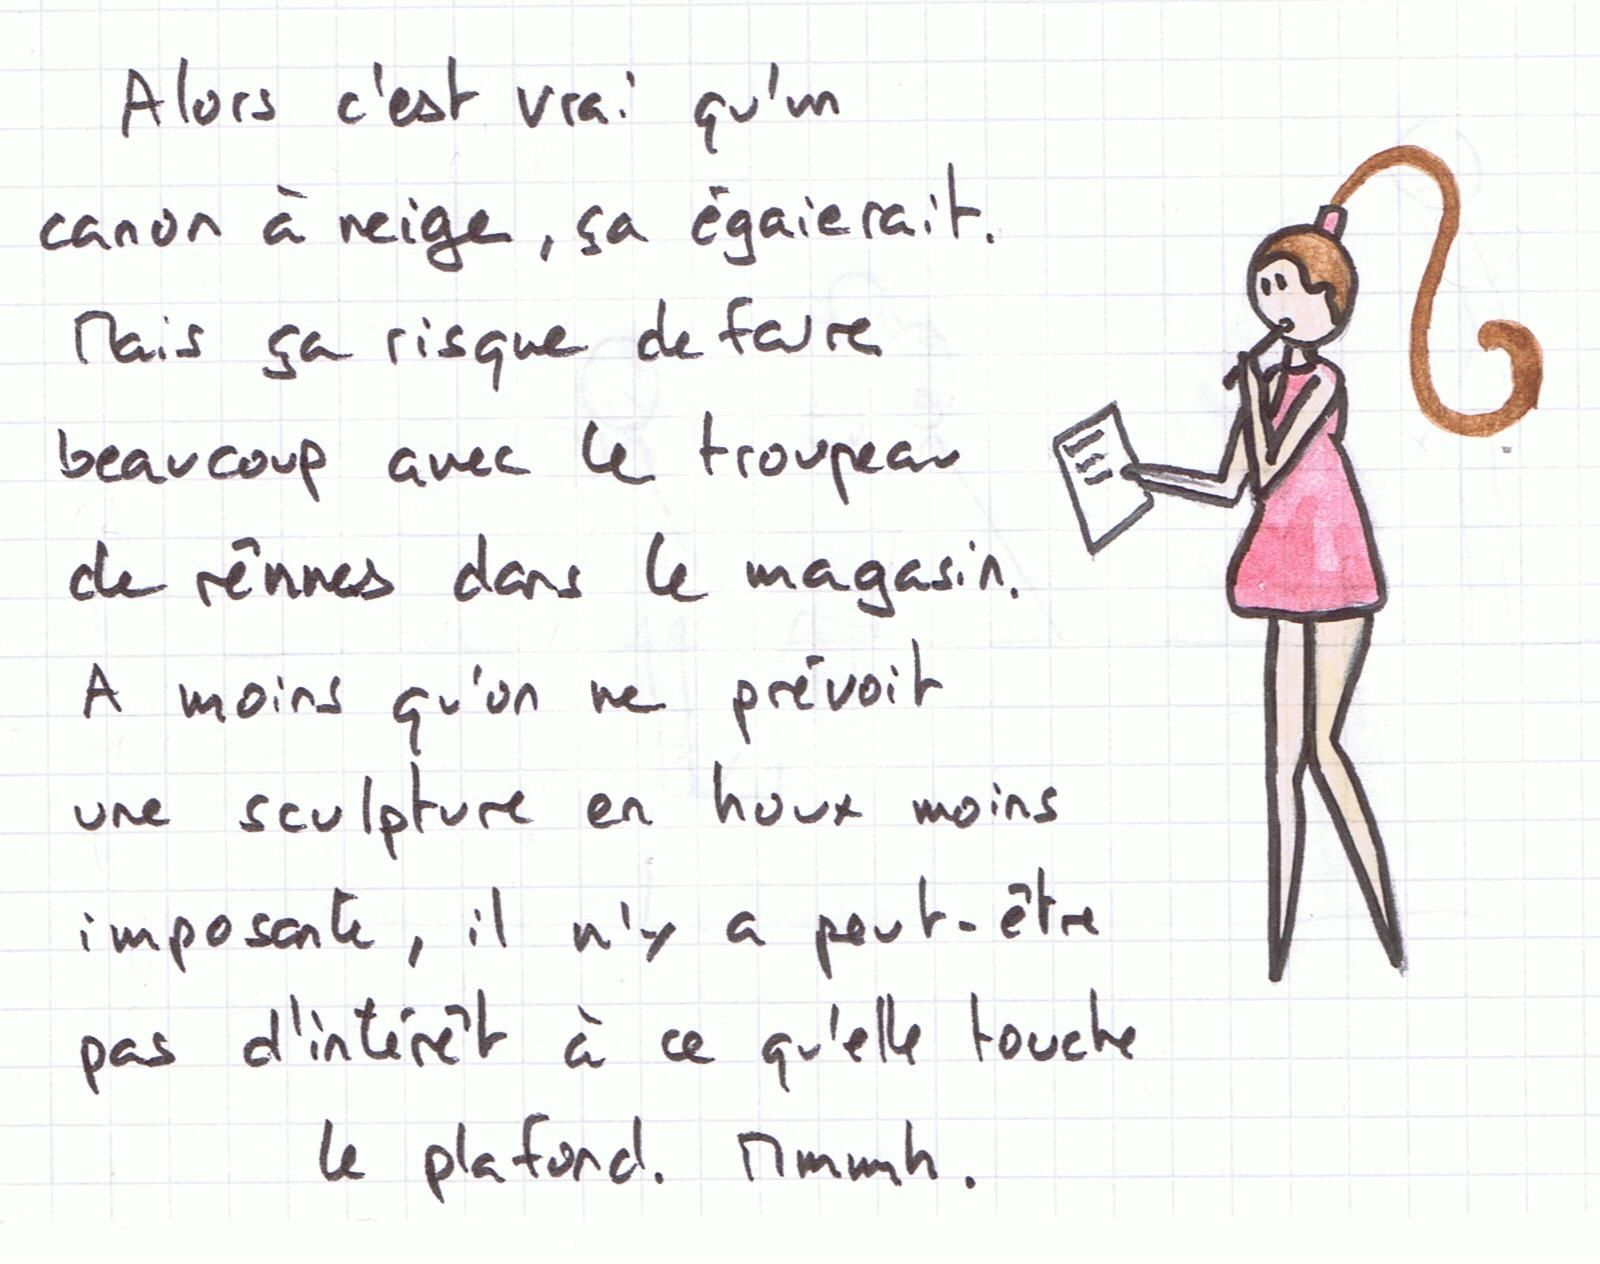 Alors c'est vrai qu'un
canon à neige, ça égaierait.
Mais ça risque de faire
beaucoup avec le troupeau
de rênnes dans le magasin.
A moins qu'on ne prévoit
une sculpture en houx moins
imposante, il n'y a peut-être
pas d'intérêt à ce qu'elle touche
le plafond. Mmmmh.